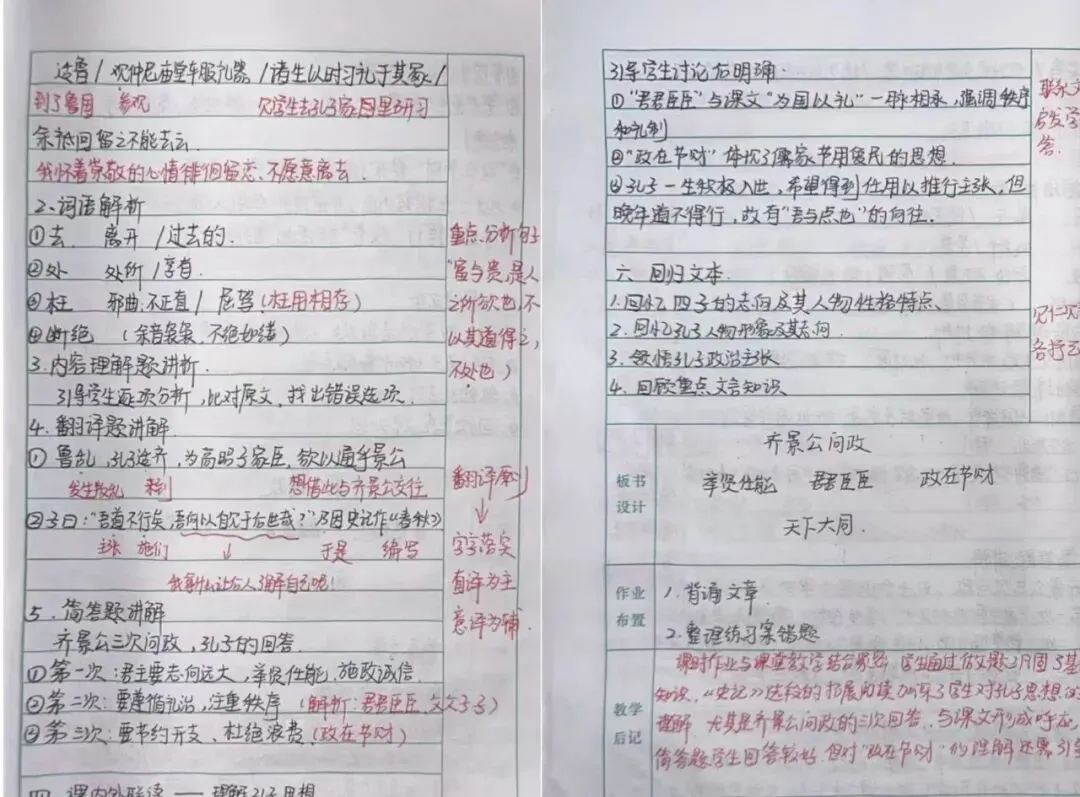 适鲁/观仲尼庙堂车服礼器/诸生以时习礼于其家/
到了鲁国 参观
余祗回留之不能去云.
我怀着崇敬的心情徘徊留恋、不愿意离去.
2、词语解析
①去. 离开/过去的.
②处 处所/享有.
③枉 邪曲;不正直/屈驾(枉用相存)
④断绝 (余音袅袅、不绝如缕)
3、内容理解题讲析.
引导学生逐项分析,比对原文,找出错误选项.
4、翻译题讲解.
①鲁乱,孔子适齐,为高昭子家臣,欲以通乎景公
发生战乱 来到 想借此与齐景公交往
②子曰:“吾道不行矣,吾何以自见于后世哉?”乃因史记作《春秋》
主张 于是 编写
我拿什么让后人了解自己呢!
5、简答题讲解
齐景公三次问政,孔子的回答.
①第一次:君主要志向远大,举贤任能,施政诚信.
②第二次:要遵循礼治,注重秩序(解析:君君臣臣、父父子子)
③第三次:要节约开支、杜绝浪费(政在节财)
四、课内外联读——理解孔子思想
重点分析句子
“富与贵,是人
之所欲也,不
以其道得之,
不处也)
翻译原则
↓
字字落实
直译为主
意译为辅.
引导学生讨论后明确.
①“君君臣臣”与课文“为国以礼”一脉相承,强调秩序
和礼制
②“政在节财”体现了儒家节用爱民的思想.
③孔子一生积极入世,希望得到任用以推行主张,但
晚年道不得行,故有“吾与点也”的向往.
六、回归文本.
1.回忆四子的志向及其人物性格特点、
2.回忆孔子人物形象及其志向.
3、领悟孔子政治主张
4、回顾重点文言知识
启发学
答.
板书
设计
齐景公问政
举贤任能 君君臣臣 政在节财
天下大同.
作业
布置
1.背诵文章.
2.整理练习案错题
教学
后记
课时作业与课堂教学结合紧密,学生通过做题巩固了基
知识,《史记》选段的拓展阅读加深了学生对孔子思想
理解,尤其是齐景公问政的三次回答,与课文形成呼应,
简答题学生回答较好.但对“政在节财”的理解还需引导